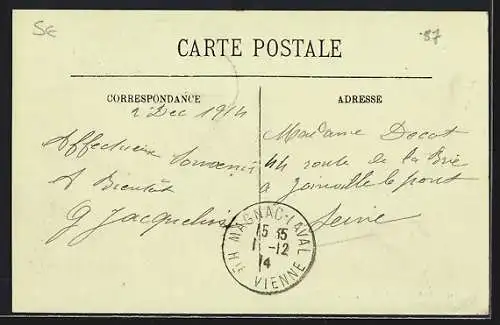 5€
87
CARTE POSTALE
CORRESPONDANCE
ADRESSE
2 Dec 1914
Affectueux Souvenir
A Bientôt
G Jacquelin
Madame Docot
44 route de la Brie
a Joinville le pont
Seine
MAGNAC-LAVAL
15 15
1 -12
14
HTE VIENNE